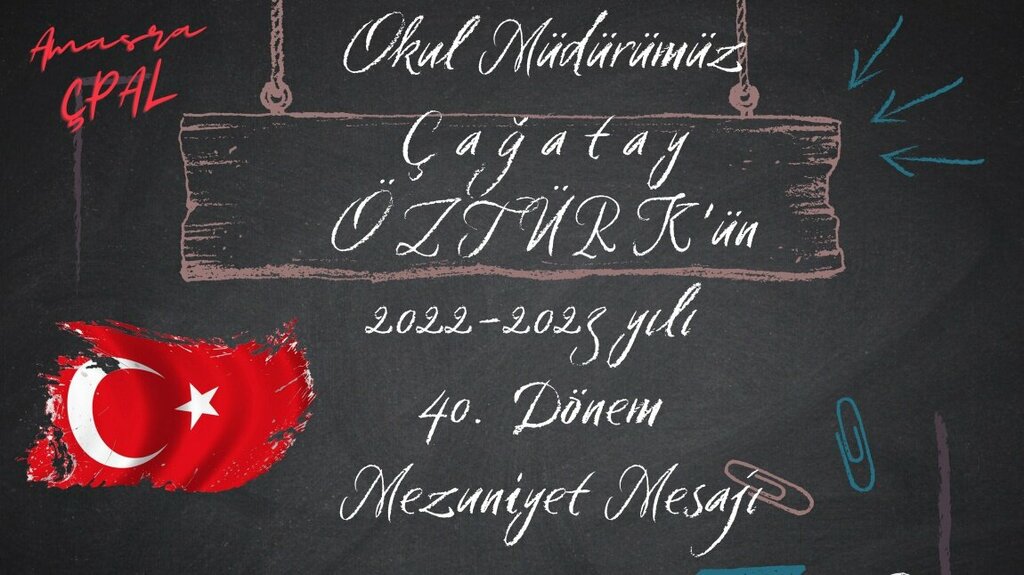 Amasra
ÇPAL
Okul Müdürümüz
Çağatay
ÖZTÜRK'ün
2022-2023 yılı
40. Dönem
Mezuniyet Mesajı